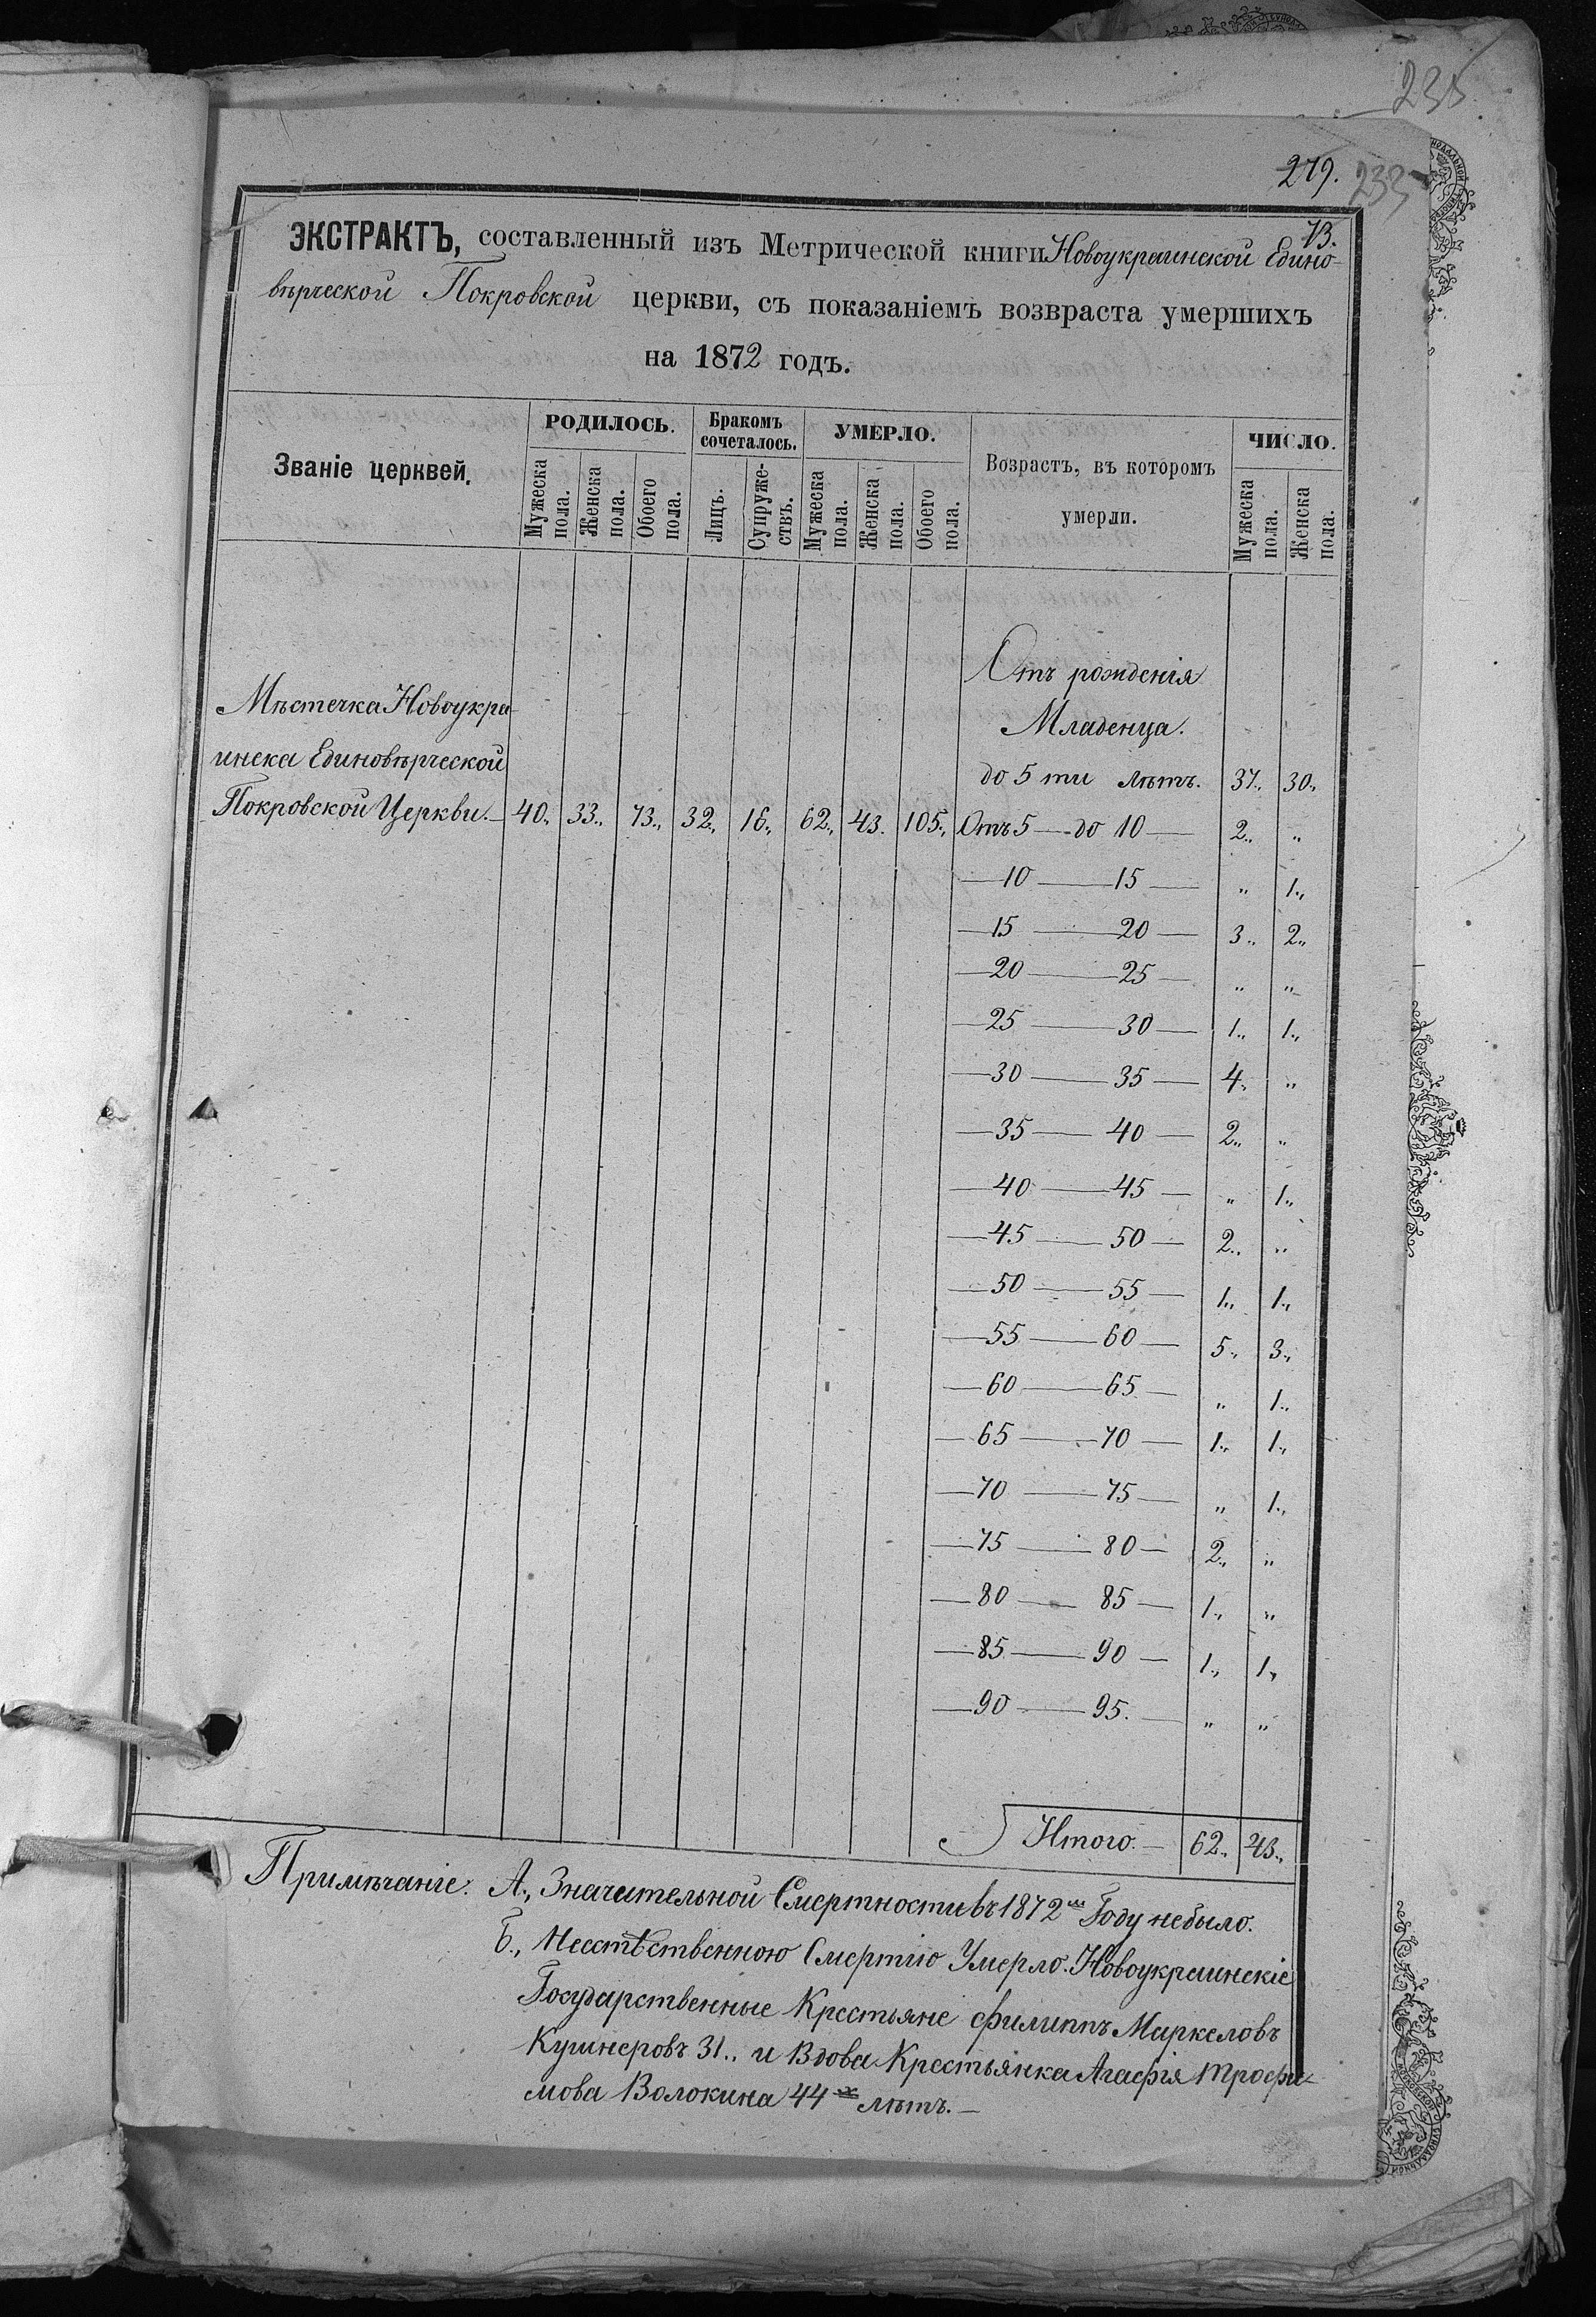 235
279. 233
73.
ЭКСТРАКТЪ, составленный изъ Метрической книги Новоукраинской Едино-
вѣрческой Покровской церкви, съ показаніемъ возвраста умершихъ
на 1872 годъ.
Званіе церквей.
РОДИЛОСЬ.
Мужеска пола.
Женска пола.
Обоего пола.
Бракомъ сочеталось.
Лицъ.
Супруже-ствъ.
УМЕРЛО.
Мужеска пола.
Женска пола.
Обоего пола.
Возрастъ, въ которомъ
умерли.
ЧИСЛО.
Мужеска пола.
Женска пола.
Отъ рожденія
Мѣстечка Новоукра-
Младенца.
инска Единовѣрческой
до 5 ти лѣтъ. 37., 30.,
Покровской Церкви.— 40., 33., 73., 32., 16., 62., 43. 105., Отъ 5 — до 10 — 2., „
— 10 — 15 — „ 1.,
— 15 — 20 — 3., 2.,
— 20 — 25 — „ „
— 25 — 30 — 1., 1.,
— 30 — 35 — 4., „
— 35 — 40 — 2., „
— 40 — 45 — „ 1.,
— 45 — 50 — 2., „
— 50 — 55 — 1., 1.,
— 55 — 60 — 5., 3.,
— 60 — 65 — „ 1.,
— 65 — 70 — 1., 1.,
— 70 — 75 — „ 1.,
— 75 — 80 — 2., „
— 80 — 85 — 1., „
— 85 — 90 — 1., 1.,
— 90 — 95. — „ „
Итого. — 62., 43.,
Примѣчаніе. А., Значительной Смертности въ 1872мъ Году небыло.
Б., Неестѣственною Смертію Умерло. Новоукраинскіе
Государственные Крестьяне Филиппъ Маркеловъ
Кушнеровъ 31., и Вдова Крестьянка Агафія Трофи-
мова Волокина 44х лѣтъ.—